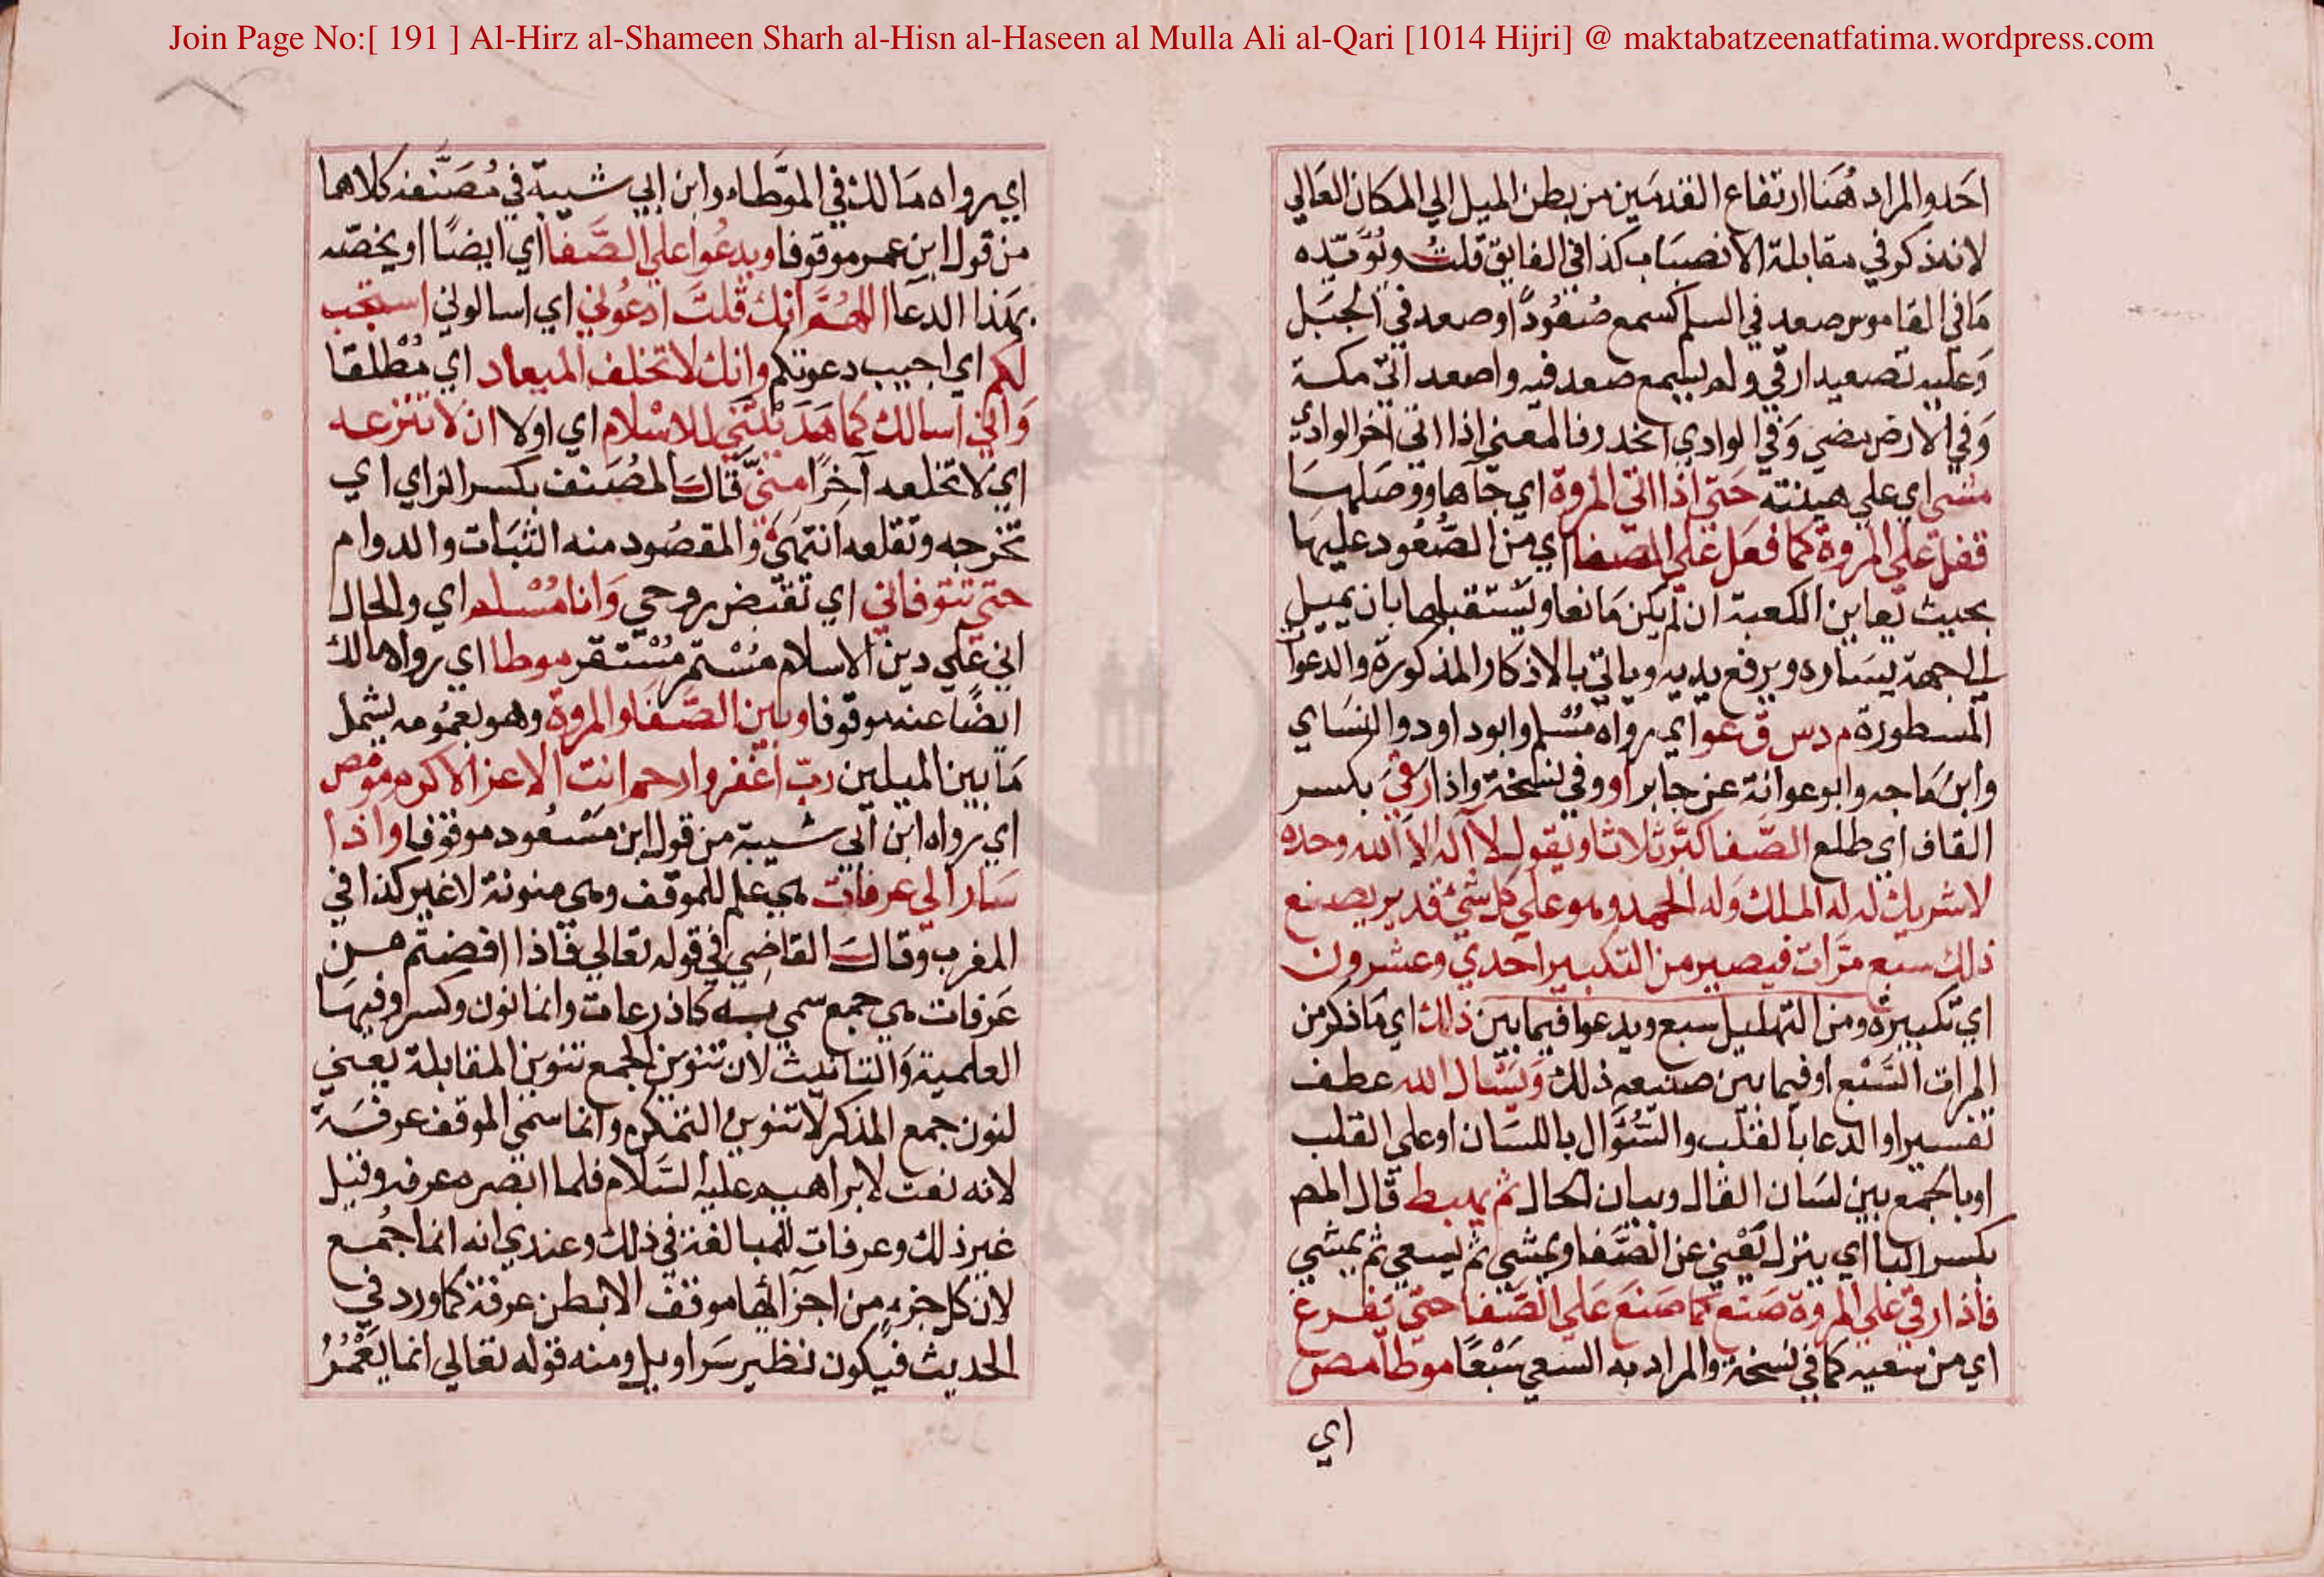 Join Page No:[ 191 ] Al-Hirz al-Shameen Sharh al-Hisn al-Haseen al Mulla Ali al-Qari [1014 Hijri] @ maktabatzeenatfatima.wordpress.com
احد والمراد هنا ارتفاع القدمين من بطن الميل الي المكان العالي
لانه ذكر في مقابلة الانصباب كذا في الفايق قلت ويؤيده
ما في القاموس صعد في السلم كسمع صعودا وصعد في الجبل
وعليه تصعيدا رقي ولم يسمع صعد فيه واصعد اتي مكة
وفي الارض مضي وفي الوادي انحدر فالمعني اذا اتي اخر الوادي
مشي اي علي هينته حتي اذا اتي المروة اي جآها ووصلها
ففعل علي المروة كما فعل علي الصفا اي من الصعود عليها
بحيث يعاين الكعبة ان لم يكن مانعا ويستقبلها بان يميل
الي جهة يساره ويرفع يديه وياتي بالاذكار المذكورة والدعوات
المسطورة م د س ق عو اي رواه مسلم وابو داود والنساي
وابن ماجه وابو عوانة عن جابر او وفي نسخة واذا رقي بكسر
القاف اي طلع الصفا كبر ثلاثا ويقول لا اله الا الله وحده
لا شريك له له الملك وله الحمد وهو علي كل شيء قدير يصنع
ذلك سبع مرات فيصير من التكبير احدي وعشرون
اي تكبيرة ومن التهليل سبع ويدعوا فيما بين ذلك اي ما ذكر من
المرات السبع او فيما بين صنيعه ذلك ويسال الله عطف
تفسير او الدعا بالقلب والسؤال باللسان او علي القلب
او بالجمع بين لسان القال وبيان الحال ثم يهبط قال المص
بكسر البا اي ينزل يعني عن الصفا ويمشي ثم يسعي ثم يمشي
فاذا رقي علي المروة صنع كما صنع علي الصفا حتي يفرغ
اي من سعيه كما في نسخة والمراد به السعي سبعا موطا مص
اي
اي رواه مالك في الموطاء وابن ابي شيبة في مصنفه كلاهما
من قول ابن عمر موقوفا ويدعوا علي الصفا اي ايضا او يخصه
بهذا الدعا اللهم انك قلت ادعوني اي اسالوني استجب
لكم اي اجيب دعوتكم وانك لا تخلف الميعاد اي مطلقا
واني اسالك كما هديتني للاسلام اي اولا ان لا تنزعه
اي لا تخلعه آخرا مني قال المصنف بكسر الزاي اي
تخرجه وتقلعه انتهي والمقصود منه الثبات والدوام
حتي تتوفاني اي تقبض روحي وانا مسلم اي والحال
اني علي دين الاسلام مستمر مستقر موطا اي رواه مالك
ايضا عنه موقوفا وبين الصفا والمروة وهو بعمومه يشمل
ما بين الميلين رب اغفر وارحم انت الاعز الاكرم مو مص
اي رواه ابن ابي شيبة من قول ابن مسعود موقوفا واذا
سار الي عرفات هي علم للموقف وهي منونة لا غير كذا في
المغرب وقال القاضي في قوله تعالي فاذا افضتم من
عرفات هي جمع سمي به كاذرعات وانما نون وكسر وفيها
العلمية والتانيث لان تنوين الجمع تنوين المقابلة يعني
لنون جمع المذكر لا تنوين التمكن وانما سمي الموقف عرفة
لانه نعت لابراهيم عليه السلام فلما ابصره عرفه وقيل
غير ذلك وعرفات للمبالغة في ذلك وعندي انه انما جمع
لان كل جزء من اجزآئها موقف الا بطن عرفة كما ورد في
الحديث فيكون نظير سراويل ومنه قوله تعالي انما يعمر